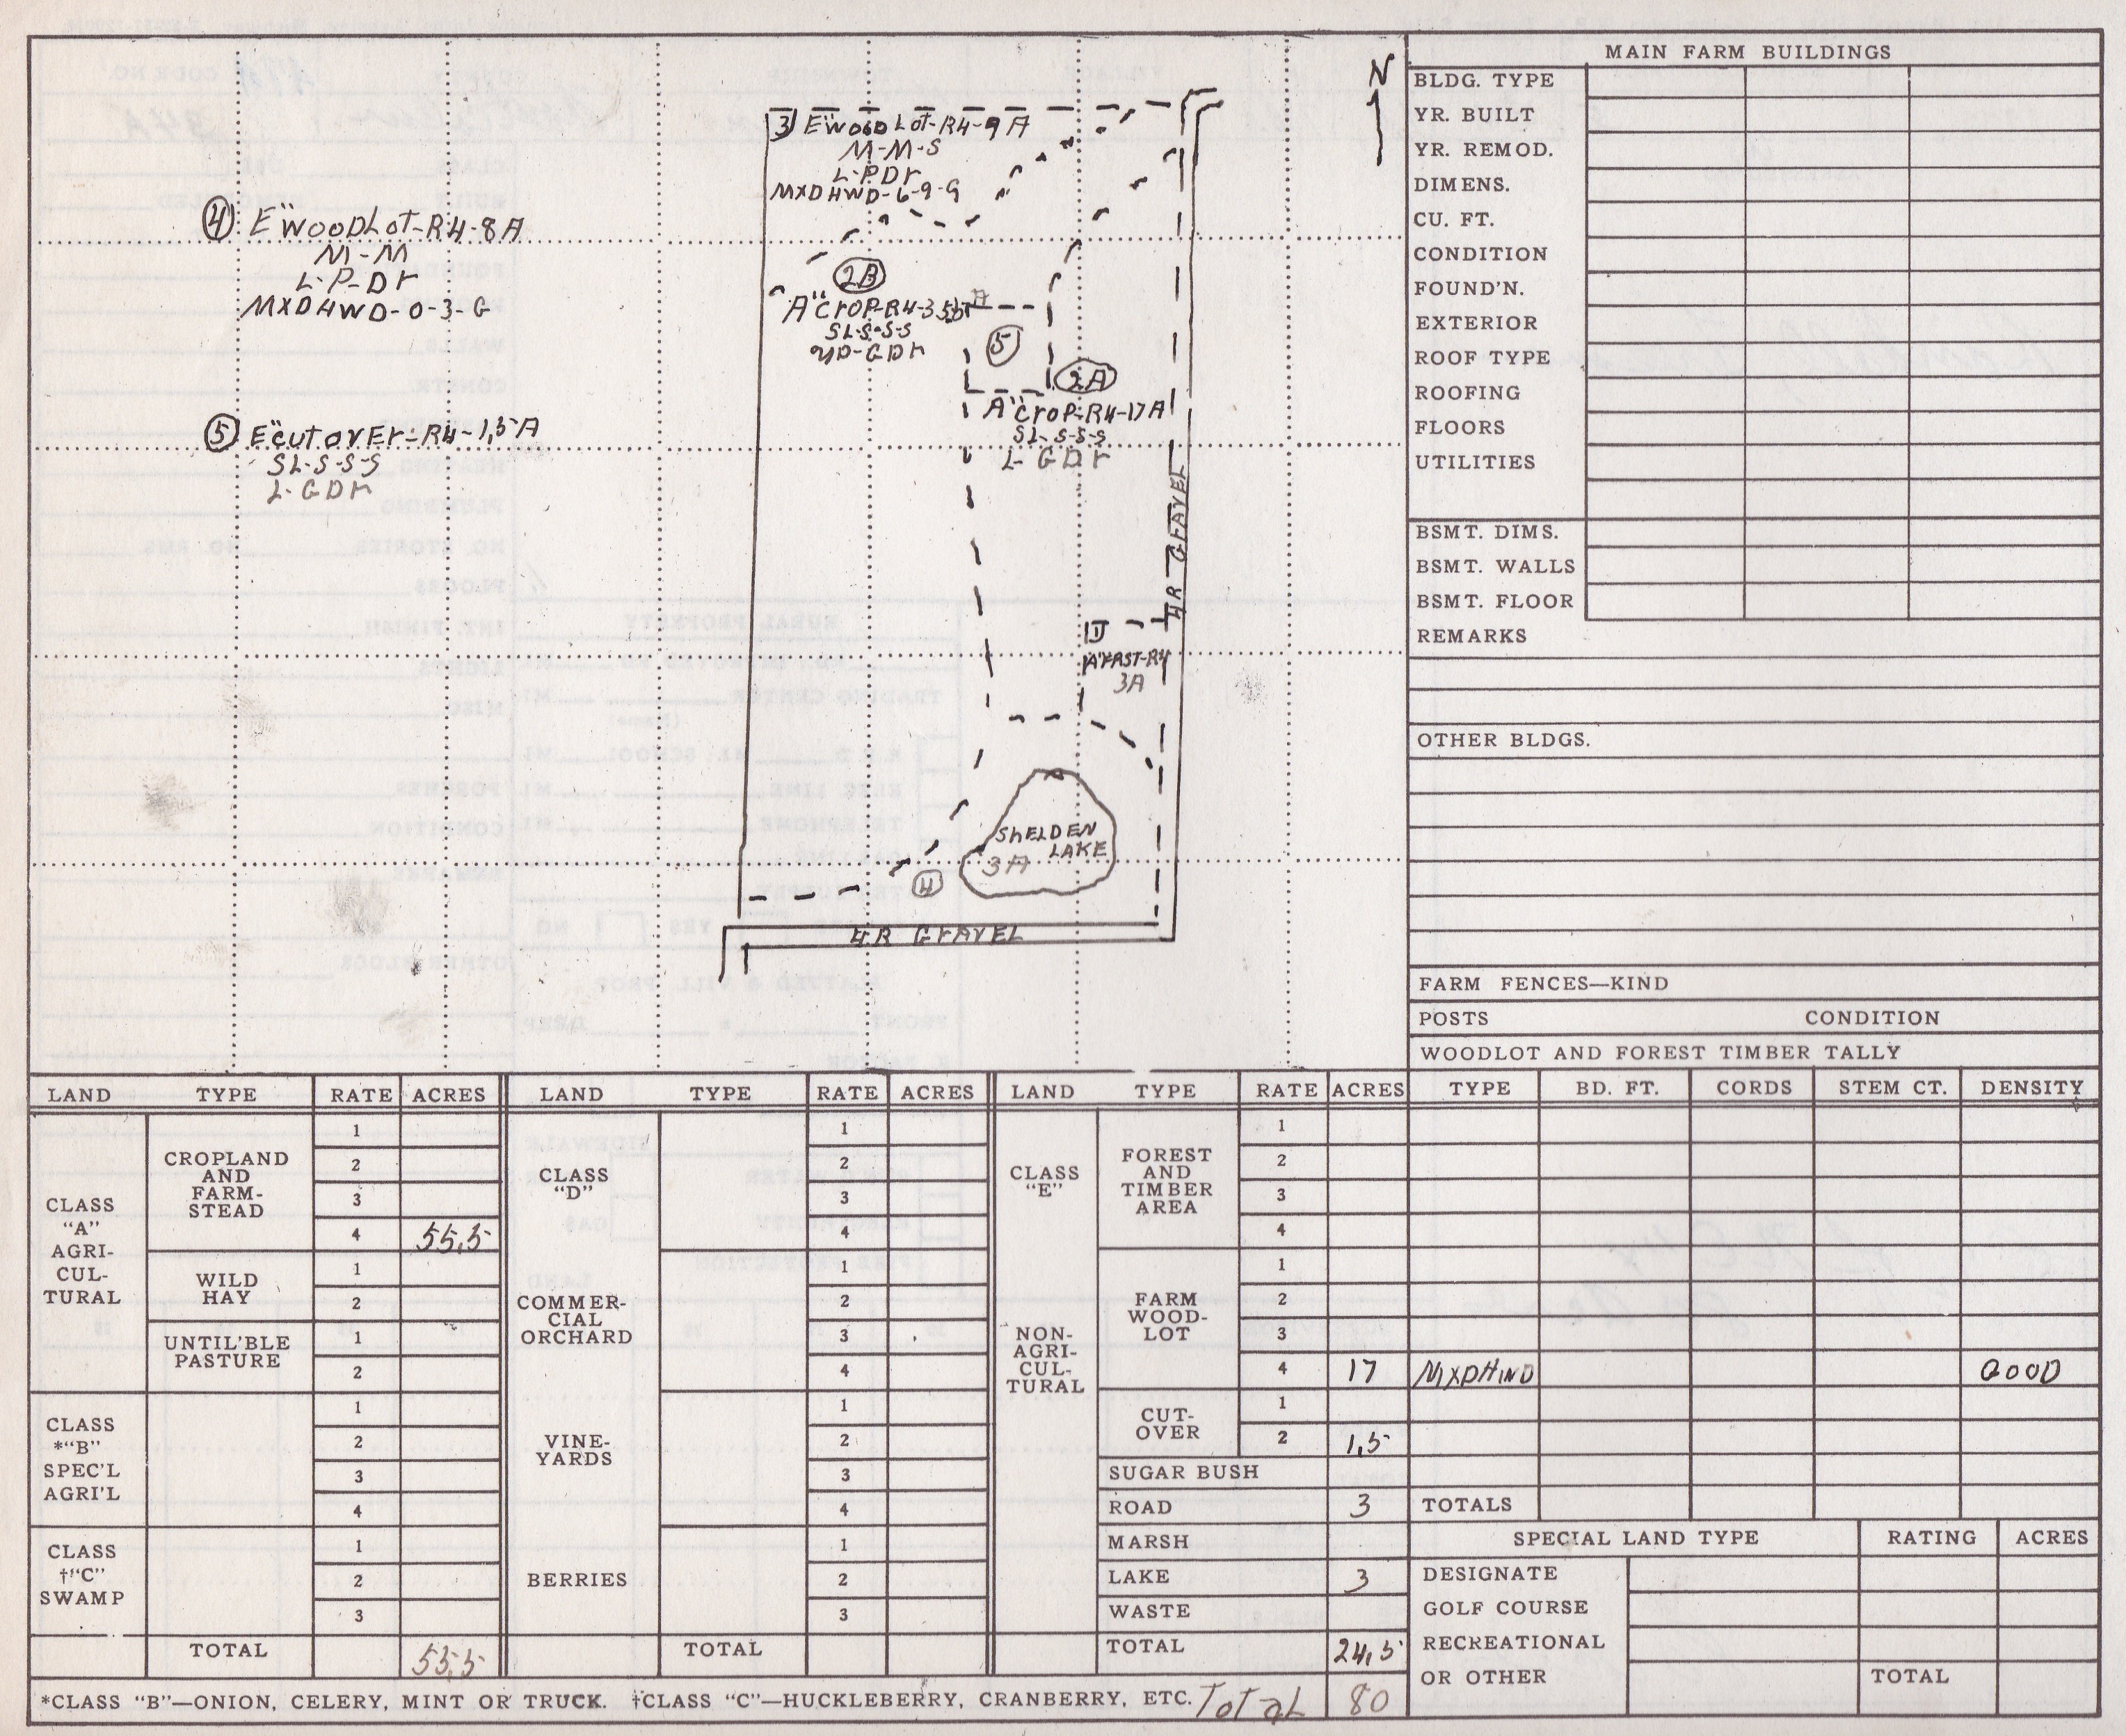 N
3 E"WOODLOT-R4-9A
M-M-S
L-PDr
MXDHWD-6-9-G
4 E"WOODLOT-R4-8A
M-M
L-P-Dr
MXDHWD-0-3-G
2B
A"CroP-R4-35.5 A
SL-S-S-S
UD-GDr
5
2A
A"CroP-R4-17A
SL-S-S-S
L-GDr
5 E"cutovEr-R4-1.5A
SL-S-S-S
L-GDr
4R GrAVEL
1
A"FRST-R4
3A
SHELDEN
LAKE
3A
4
4R GrAVEL
MAIN FARM BUILDINGS
BLDG. TYPE
YR. BUILT
YR. REMOD.
DIMENS.
CU. FT.
CONDITION
FOUND'N.
EXTERIOR
ROOF TYPE
ROOFING
FLOORS
UTILITIES
BSMT. DIMS.
BSMT. WALLS
BSMT. FLOOR
REMARKS
OTHER BLDGS.
FARM FENCES—KIND
POSTS CONDITION
WOODLOT AND FOREST TIMBER TALLY
LAND TYPE RATE ACRES LAND TYPE RATE ACRES LAND TYPE RATE ACRES TYPE BD. FT. CORDS STEM CT. DENSITY
CLASS
"A"
AGRI-
CUL-
TURAL
CROPLAND
AND
FARM-
STEAD
1
2
3
4 55.5
WILD
HAY
1
2
UNTIL'BLE
PASTURE
1
2
CLASS
*"B"
SPEC'L
AGRI'L
1
2
3
4
CLASS
†"C"
SWAMP
1
2
3
TOTAL 55.5
CLASS
"D"
1
2
3
4
COMMER-
CIAL
ORCHARD
1
2
3
4
VINE-
YARDS
1
2
3
4
BERRIES
1
2
3
TOTAL
CLASS
"E"
NON-
AGRI-
CUL-
TURAL
FOREST
AND
TIMBER
AREA
1
2
3
4
FARM
WOOD-
LOT
1
2
3
4 17 MXDHWD GOOD
CUT-
OVER
1
2 1.5
SUGAR BUSH
ROAD 3 TOTALS
MARSH
LAKE 3
WASTE
TOTAL 24.5
SPECIAL LAND TYPE RATING ACRES
DESIGNATE
GOLF COURSE
RECREATIONAL
OR OTHER TOTAL
*CLASS "B"—ONION, CELERY, MINT OR TRUCK. †CLASS "C"—HUCKLEBERRY, CRANBERRY, ETC. Total 80